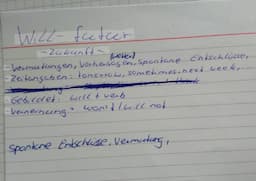 Will-futur
-Zukunft-
(Wetter)
-Vermutungen, Vorhersagen, spontane Entschlüsse,
-Zeitangaben: tomorrow, sometimes, next week,
Gebildet: will + verb
Verneinung: won't/will not
Spontane Entschlüsse, Vermutung,